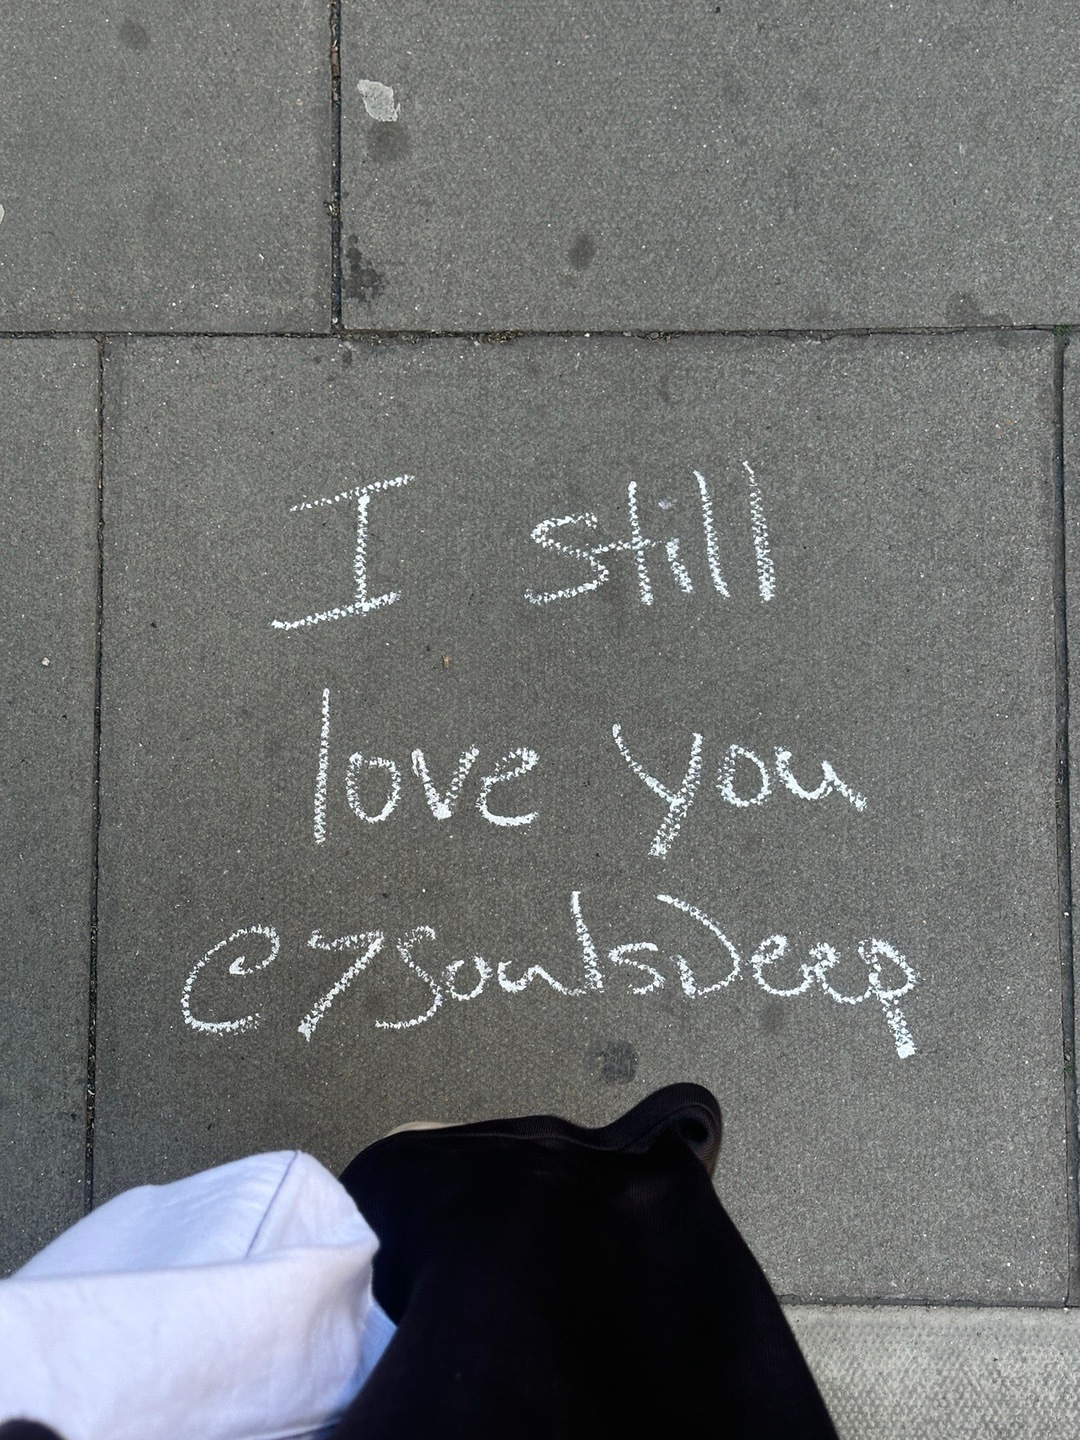 I still
love you
@7SoulsDeep